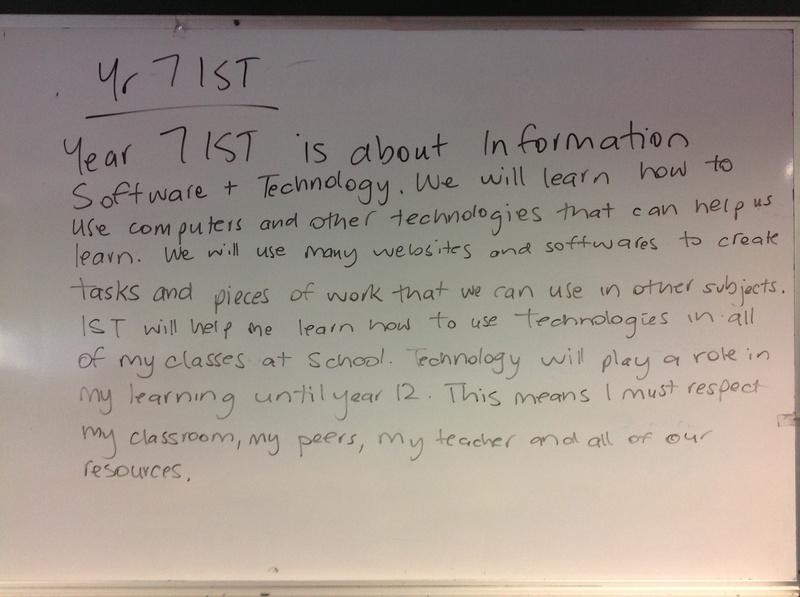 Yr 7 IST
Year 7 IST is about Information
Software + Technology. We will learn how to
use computers and other technologies that can help us
learn. We will use many websites and softwares to create
tasks and pieces of work that we can use in other subjects.
IST will help me learn how to use technologies in all
of my classes at School. Technology will play a role in
my learning until year 12. This means I must respect
my classroom, my peers, my teacher and all of our
resources.